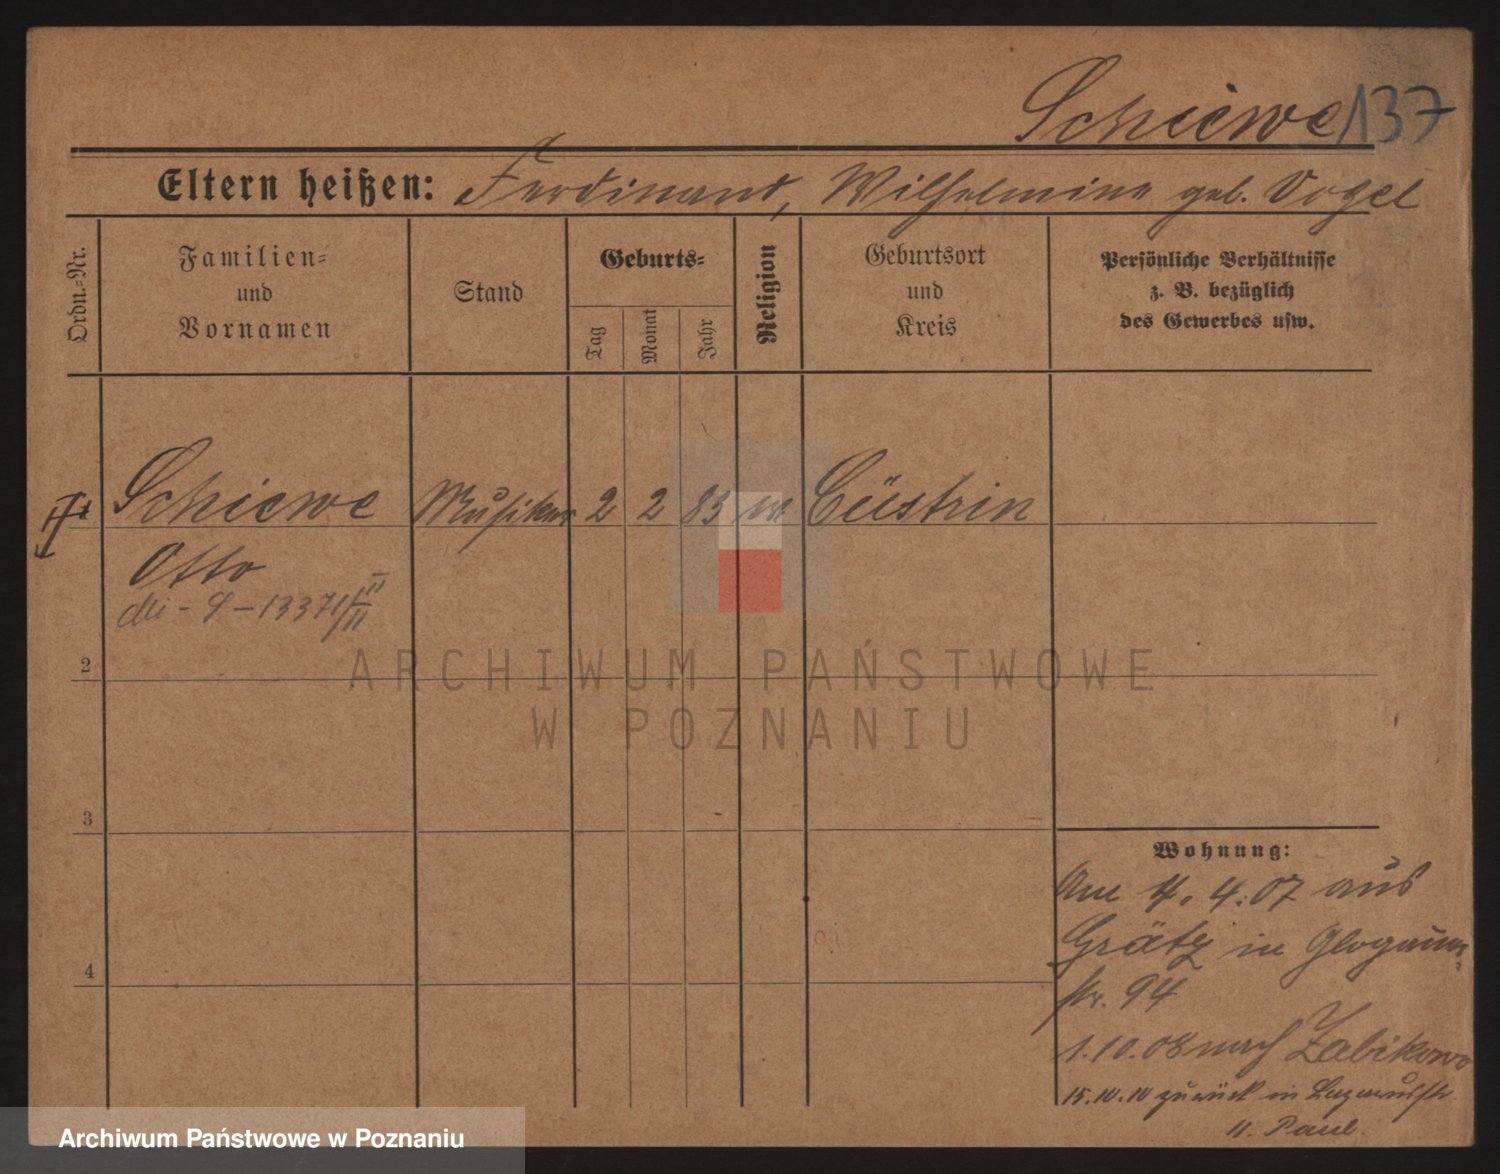 Schiewe 137
Eltern heißen: Ferdinand, Wilhelmine geb. Vogel
Ordn.-Nr.
Familien-
und
Vornamen
Stand
Geburts-
Tag
Monat
Jahr
Religion
Geburtsort
und
Kreis
Persönliche Verhältnisse
z. B. bezüglich
des Gewerbes usw.
Schiewe Musiker 2 2 83 Cüstrin
Otto
2
3
4
Wohnung:
Am 4. 4. 07 aus
Grätz in Glogauer-
str. 94
1.10.08 nach Zabikowo
15.10.10 zurück in Lazarusstr.
11. Paul.
ARCHIWUM PAŃSTWOWE
W POZNANIU
Archiwum Państwowe w Poznaniu